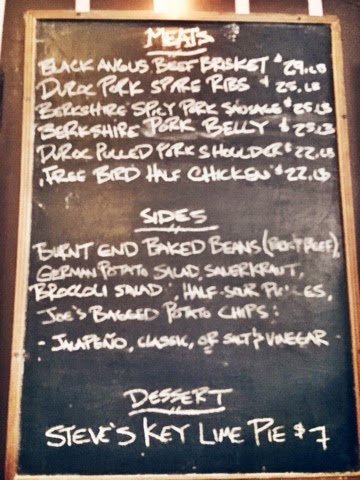 MEATS
BLACK ANGUS BEEF BRISKET $29.LB
DUROC PORK SPARE RIBS $25.LB
BERKSHIRE SPICY PORK SAUSAGE $25LB
BERKSHIRE PORK BELLY $25.LB
DUROC PULLED PORK SHOULDER $22.LB
FREE BIRD HALF CHICKEN $22.LB
SIDES
BURNT END BAKED BEANS (PORK & BEEF),
GERMAN POTATO SALAD, SAUERKRAUT,
BROCCOLI SALAD, HALF-SOUR PICKLES,
JOE'S BAGGED POTATO CHIPS:
- JALAPEÑO, CLASSIC, OR SALT & VINEGAR
DESSERT
STEVE'S KEY LIME PIE $7